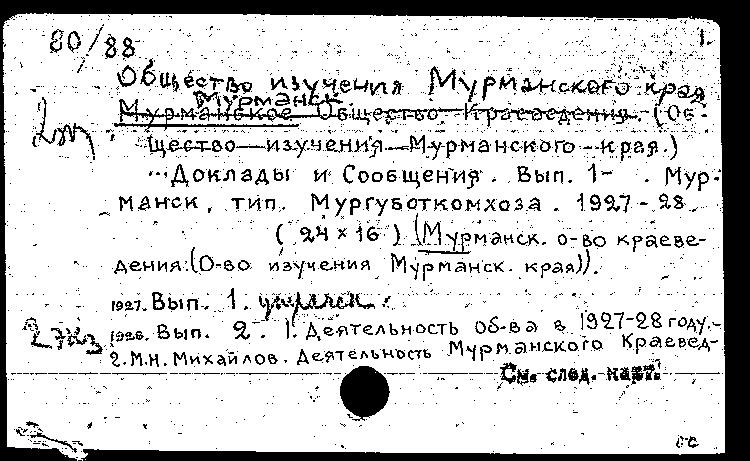 80/88
1.
Общество изучения Мурманского края
Мурманск
Мурманское Общество Краеведения. (Об-
щество изучения Мурманского края.)
Доклады и Сообщения. Вып. 1- . Мур-
манск, тип. Мургуботкомхоза. 1927-28.
(24×16) (Мурманск. о-во краеве-
дения:(О-во изучения Мурманск. края)).
1927. Вып. 1.
2 экз
1928. Вып. 2. 1. Деятельность об-ва в 1927-28 году.-
2. М.Н. Михайлов. Деятельность Мурманского Краевед-
См. след. карт.